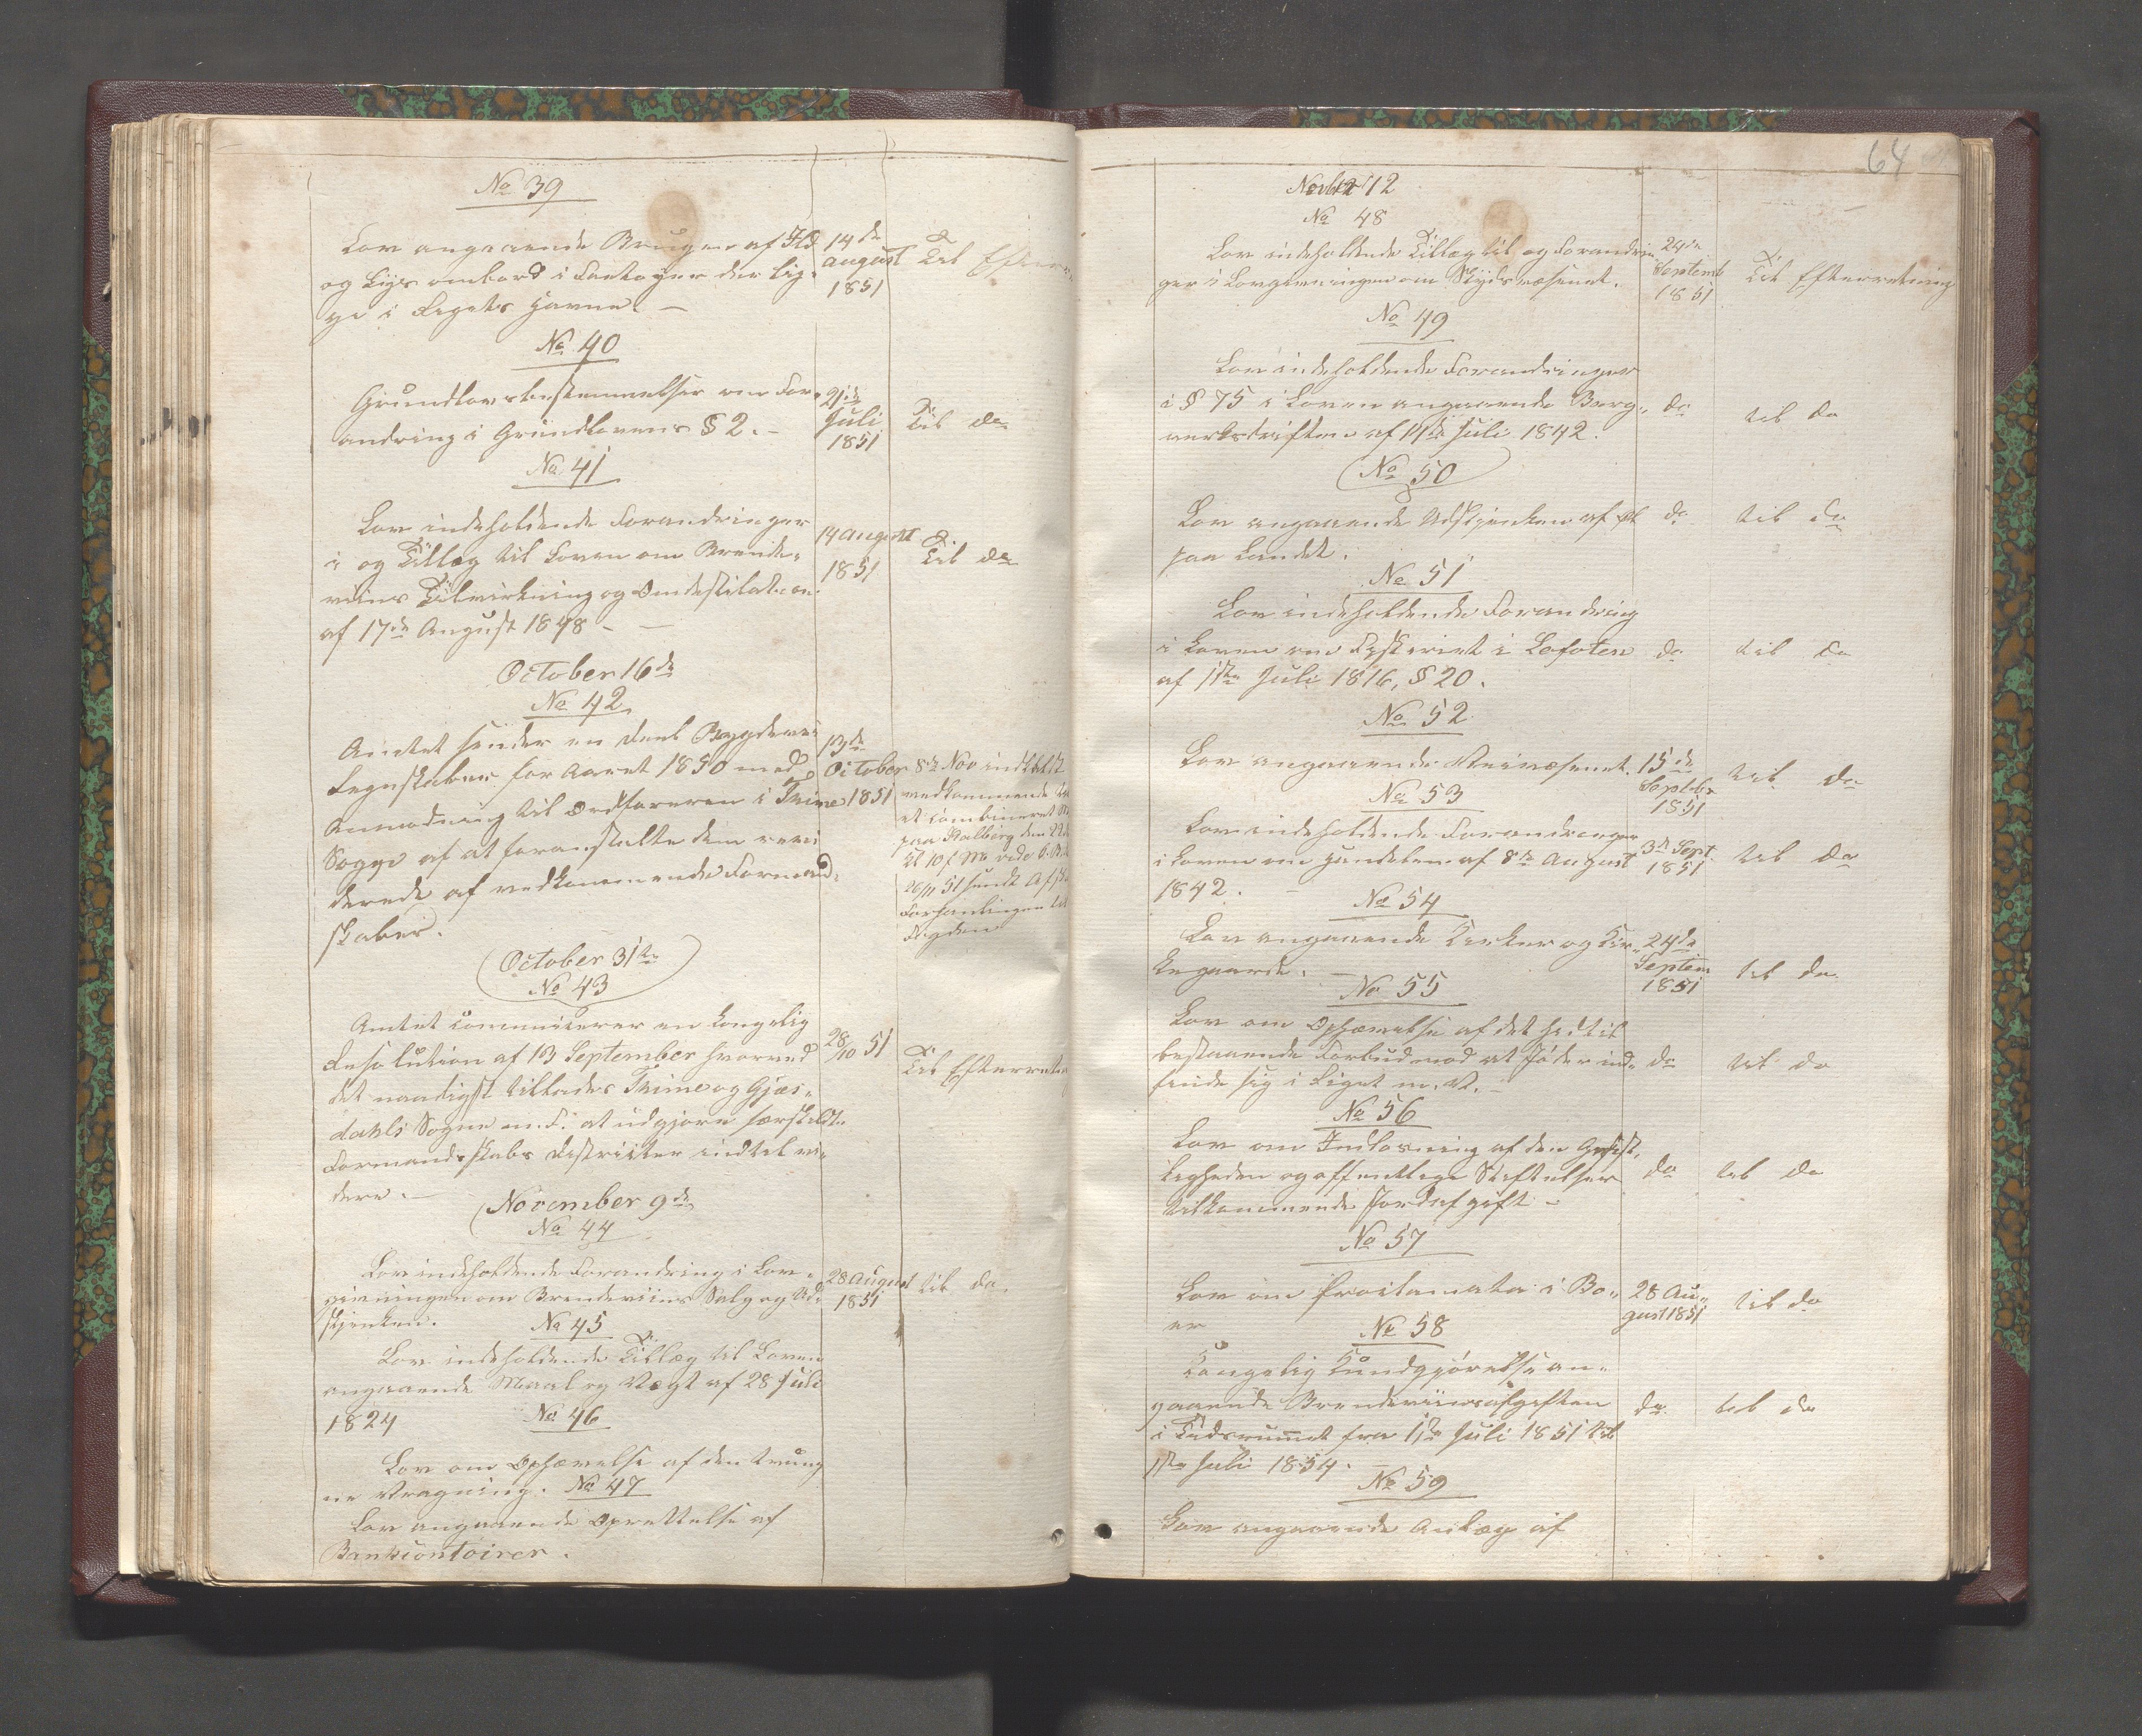 No 39
Lov angaaende Brugen af Ild
og Lys ombord i Fartøier der lig-
ge i Rigets Havne. –
14de
august
1851
Til Efterr
No 40
Grundlovsbestemmelser om For-
andring i Grundlovens § 2. –
21de
Juli
1851
Til do
No 41
Lov indeholdende Forandringer
i og Tillæg til Loven om Brænde-
viins Tilvirkning og Omdestilation
af 17de August 1848 –
14 august
1851
Til do
October 16de
No 42
Amtet sender en Deel Bygdevei
Regnskaber for Aaret 1850 med
Anmodning til Ordføreren i Thime
Sogge af at foranstalte dem revi
derede af vedkommende Formand-
skaber.
13de
October
1851
8de Nov indkaldt
vedkommende til
et combineret M
paa Stalberg den 22de
Kl 10 f. M. vide C. B.
26/11 51 sendt Afsk
Forhanlingen til
Fogden
October 31te
No 43
Amtet communicerer en kongelig
Resolution af 13 September hvorved
det naadigst tillades Thime og Gjæs-
dahls Sogne m. F. at udgjøre særskildte
Formandsskabs Districter indtil vi-
dere. –
28/10 51
Til Efterretn
November 9de
No 44
Lov indeholdende Forandring i Lov-
givningen om Brændeviins Salg og Ud-
skjenken.
28 August
1851
til do.
No 45
Lov indeholdende Tillæg til Loven
angaaende Maal og Vægt af 28 Juli
1824
No 46
Lov om Ophævelse af den tvung
ne Vragning.
No 47
Lov angaaende Oprettelse af
Bankcontoirer.
64
Novbr 12
No 48
Lov indeholdende Tillæg til og Forandrin
ger i Lovgivningen om Skydsvæsenet.
24de
Septemb
1851
Til Efterretning
No 49
Lov indeholdende Forandringer
i § 75 i Loven angaaende Berg-
værksdriften af 14de Juli 1842.
do
til do
No 50
Lov angaaende Udskjenken af Øl
paa Landet.
do
til do
No 51
Lov indeholdende Forandring
i Loven om Fiskeriet i Lofoten
af 1ste Juli 1816, § 20.
do
til do
No 52
Lov angaaende Veivæsenet.
15de
Septbr
1851
til do
No 53
Lov indeholdende Forandringer
i Loven om Handelen af 8de August
1842. –
3de Sept.
1851
til do
No 54
Lov angaaende Kirker og Kir-
kegaarde. –
24de
Septem
1851
til do.
No 55
Lov om Ophævelse af det hidtil
bestaaende Forbud mod at Jøder ind-
finde sig i Riget m. V. –
do
til do
No 56
Lov om Indløsning af den Geist-
ligheden og offentlige Stiftelser
tilkommende Jordafgift –
do
til do
No 57
Lov om Proclamata i Bo-
er
28 Au-
gust 1851
til do
No 58
Kongelig Kundgjørelse an-
gaaende Brændeviinsafgiften
i Tidsrummet fra 1ste Juli 1851 til
1ste Juli 1854. –
do
til do
No 59
Lov angaaende Anlæg af